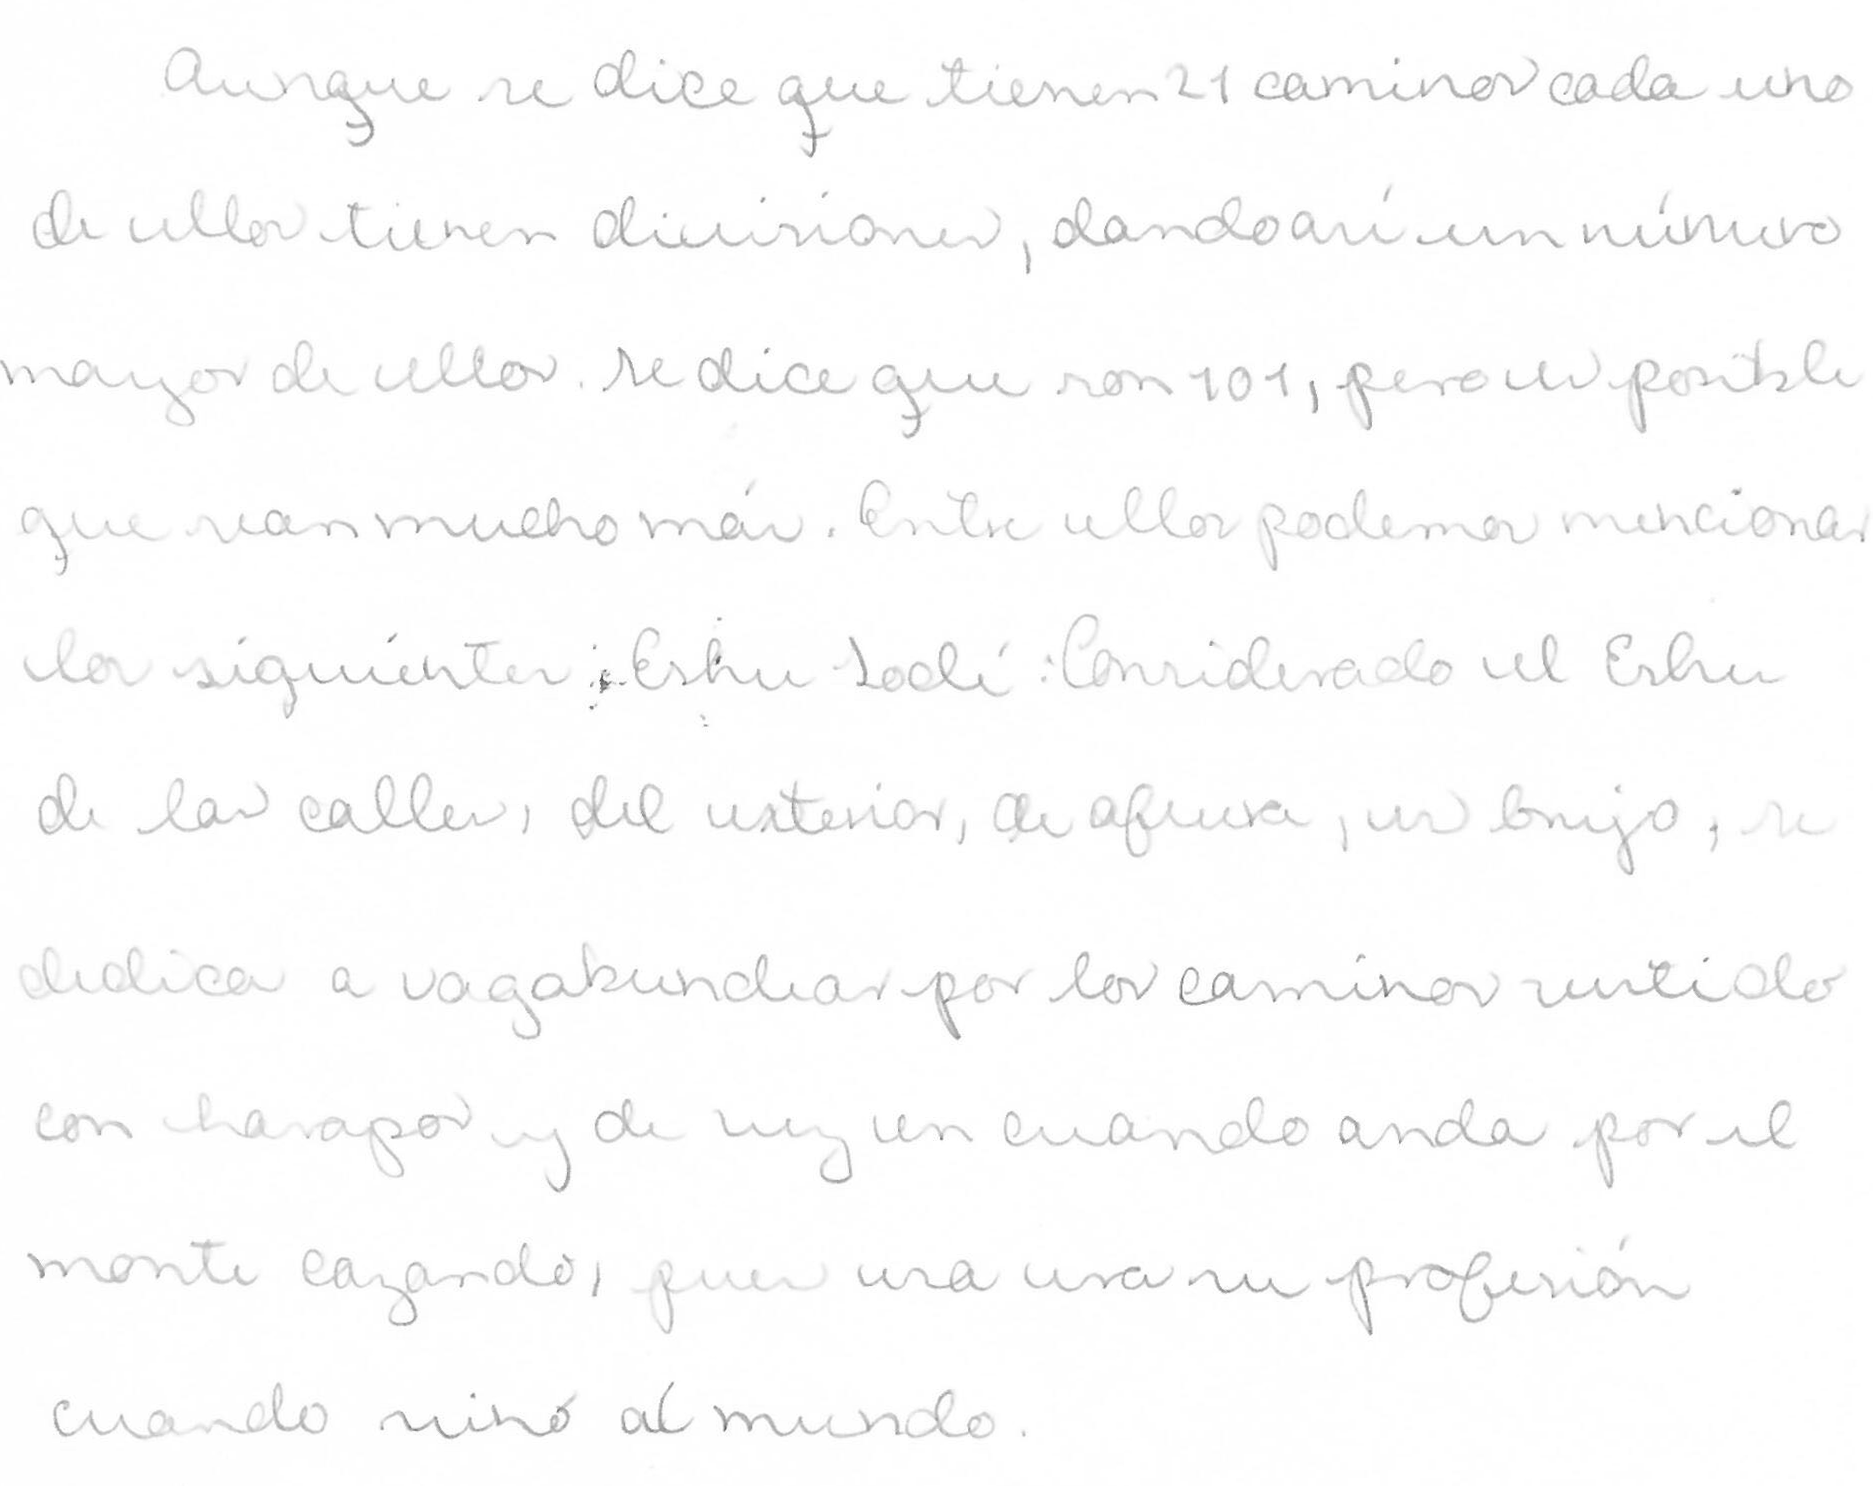 Aunque se dice que tienen 21 caminos cada uno
de ellos tienen divisiones, dando así un número
mayor de ellos. Se dice que son 101, pero es posible
que sean mucho más. Entre ellos podemos mencionar
los siguientes: Eshu Lodé: Considerado el Eshu
de las calles, del exterior, de afuera, es brujo, se
dedica a vagabundear por los caminos vestido
con harapos y de vez en cuando anda por el
monte cazando, pues esa era su profesión
cuando vino al mundo.